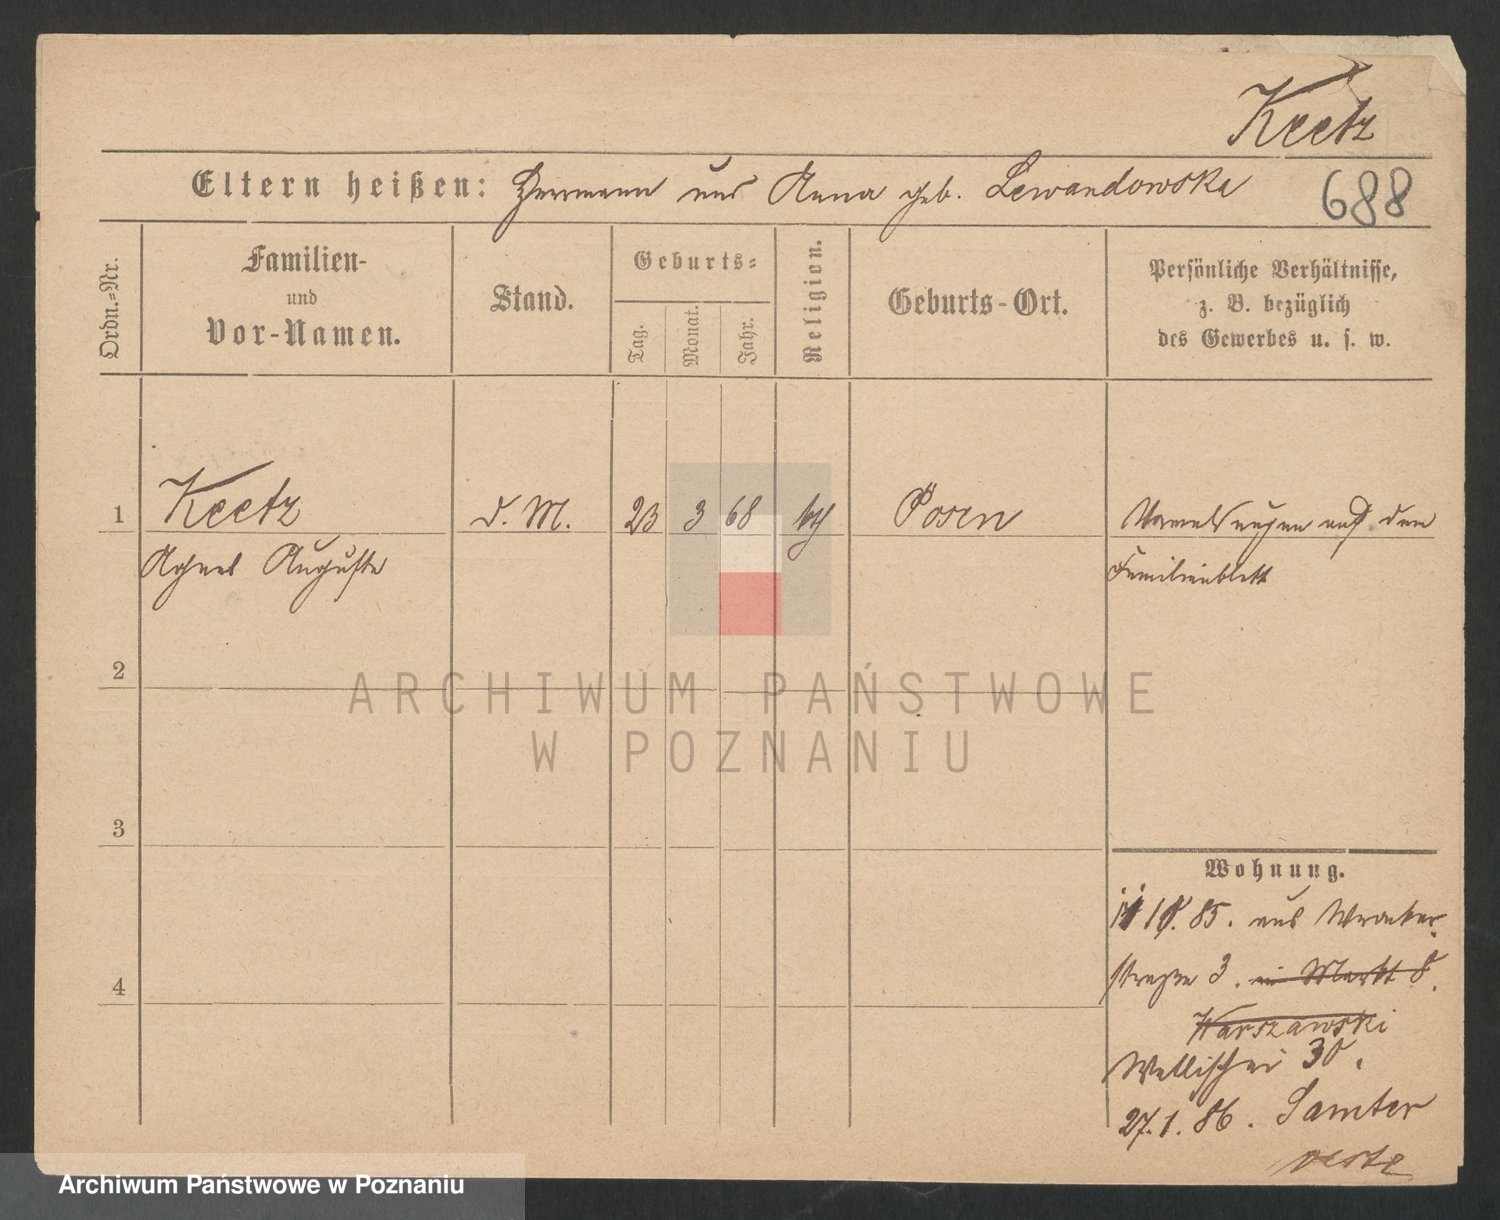 Keetz
Eltern heißen: Herrmann und Anna geb. Lewandowska
688
Ordn.=Nr.
Familien-
und
Vor-Namen.
Stand.
Geburts=
Tag.
Monat.
Jahr.
Religion.
Geburts-Ort.
Persönliche Verhältnisse,
z. B. bezüglich
des Gewerbes u. s. w.
1
Keetz
d. M.
23
3
68
kth
Posen
auf den
Agnes Auguste
Familienblatt
2
3
4
Wohnung.
85. aus Wronker
straße 3. in Markt 8.
Warszawski
Wallischei 30.
27.1.86. Samter
ARCHIWUM PAŃSTWOWE
W POZNANIU
Archiwum Państwowe w Poznaniu